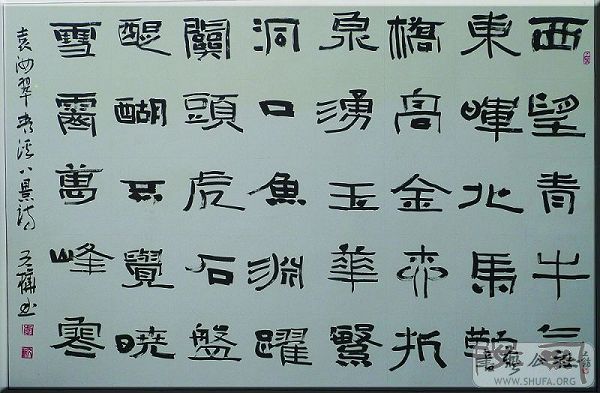 西望青牛气
東暉北馬鞍
橋高金折
泉湧玉華繁
洞口魚淵躍
關頭虎石盤
醍醐覺曉
雪霽萬峰寒
袁汝翠溪八景詩
书
書藝公社
WWW.SHUFA.ORG